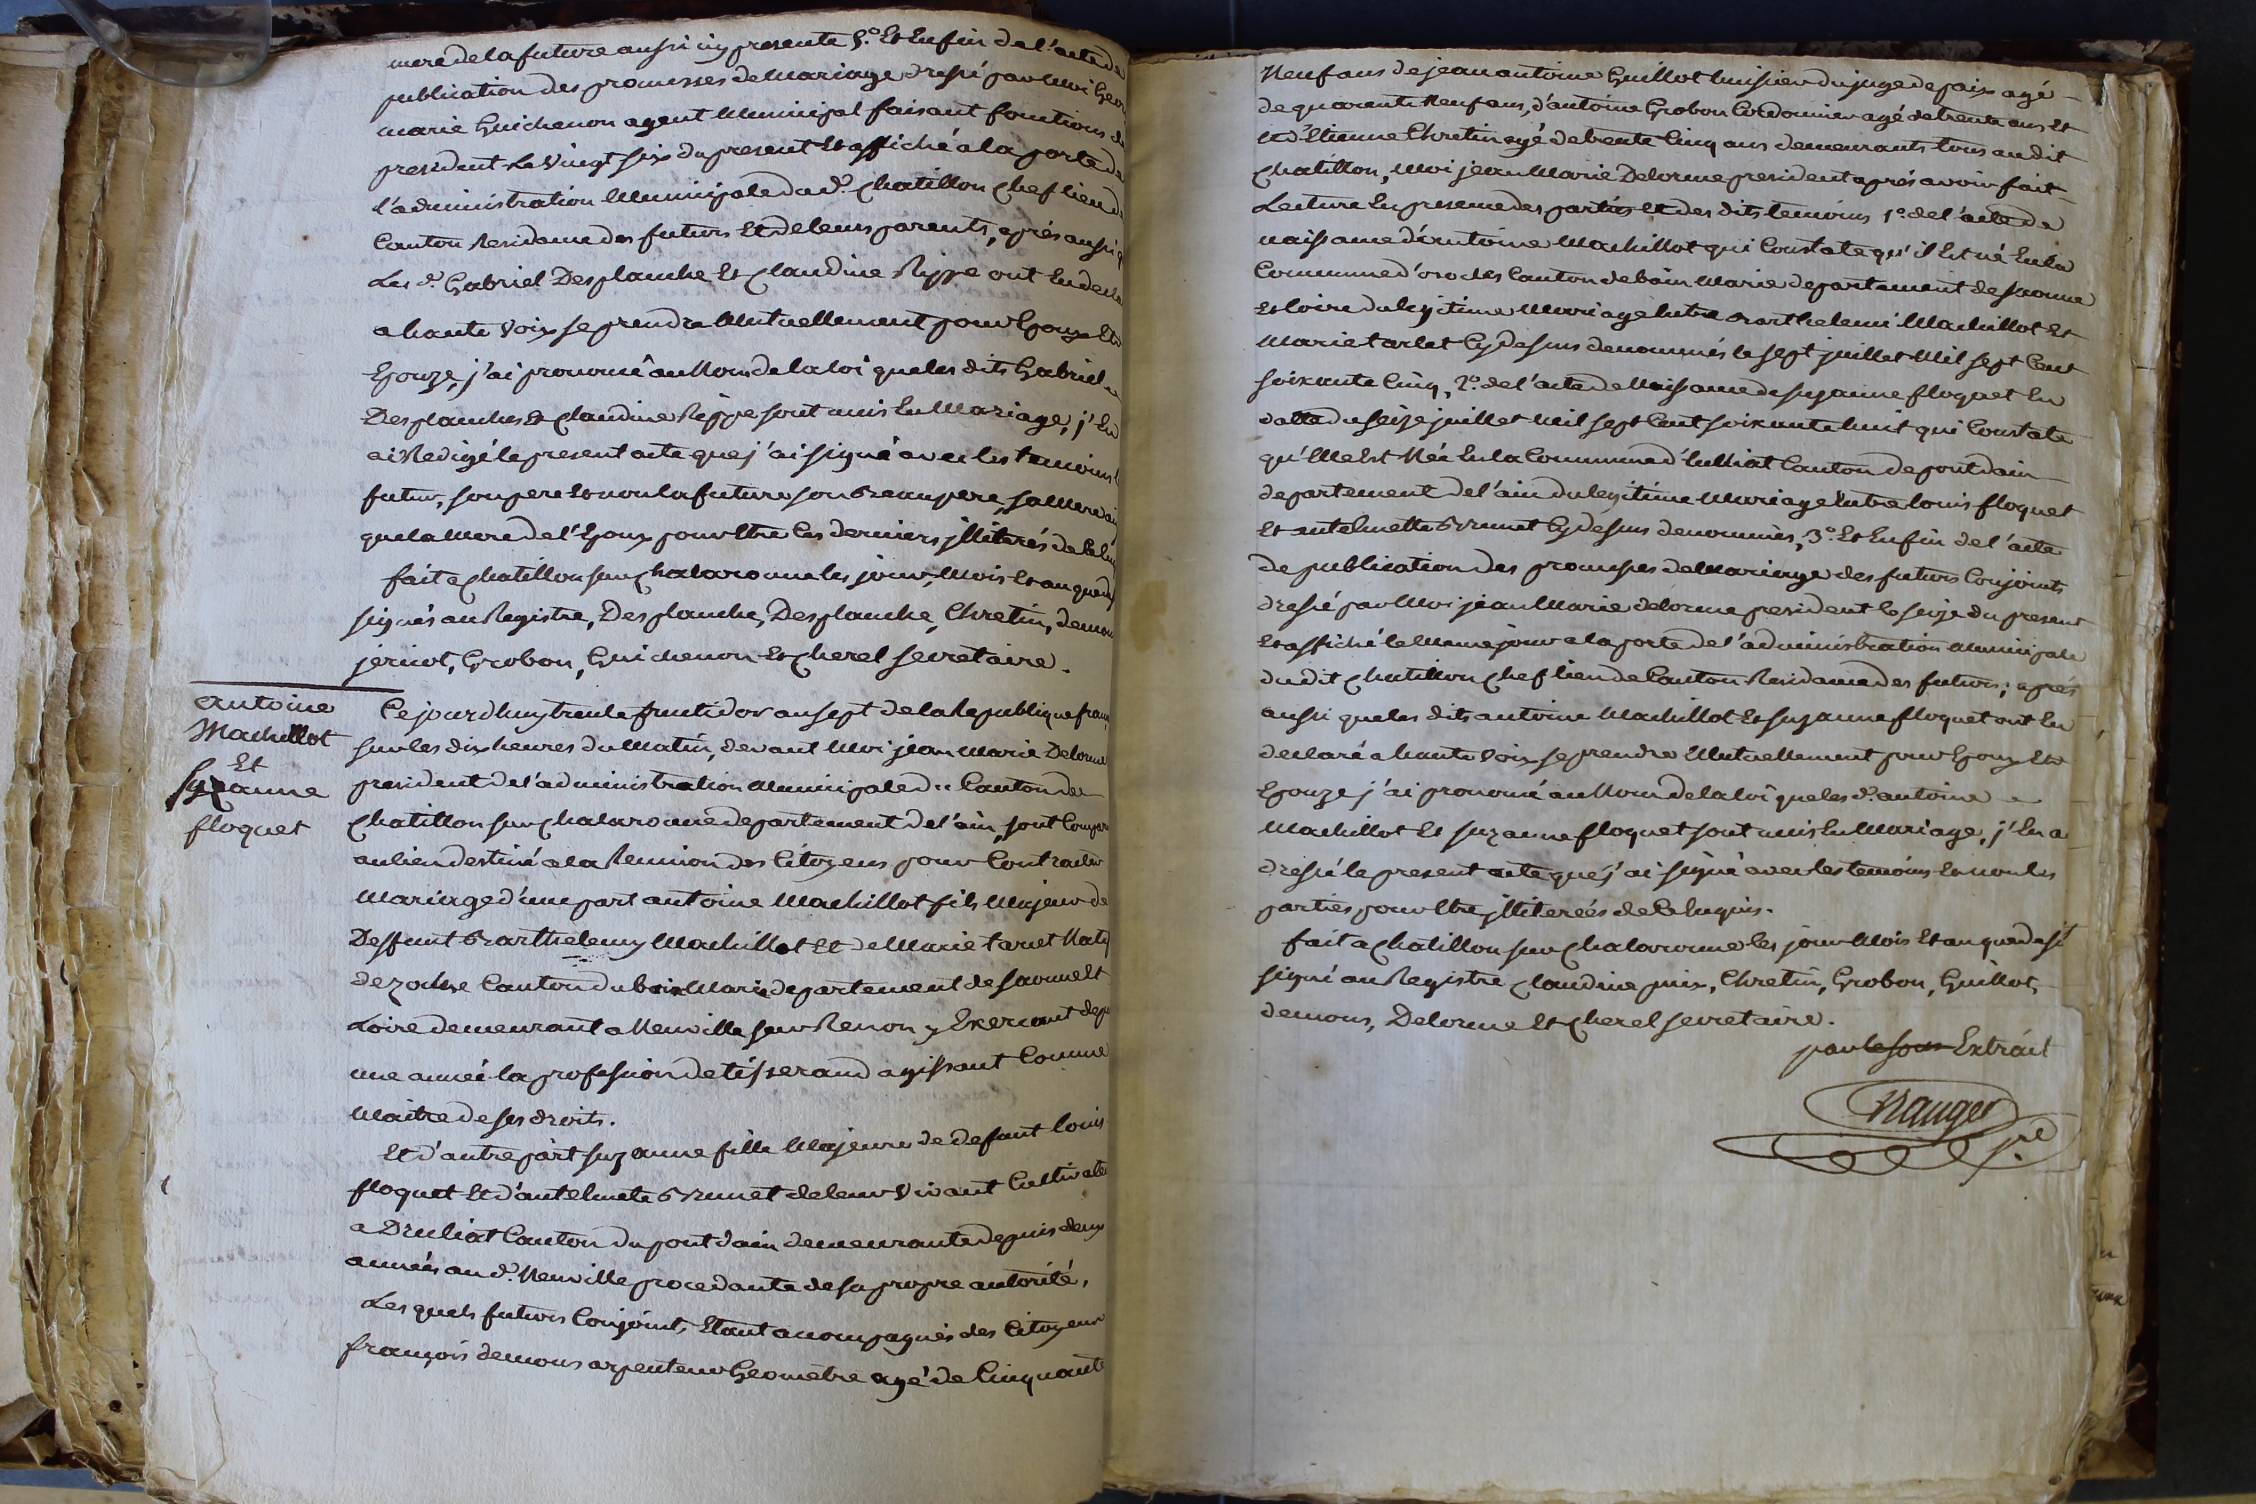 mere de la future aussi icy presente 5.° Et Enfin de l'acte de
publication des promesses de Mariage dressé par Moi
marie Guichenon agent Municipal faisant fonctions de
president Le Vingt six du present Et affiché a la porte de
l'administration Municipale du d.t Chatillon chef lieu de
Canton Residance des futurs Et de leurs parents, après aussi q
Les d.s Gabriel Desplanche Et Claudine Rippe ont Eu declaré
a haute Voix se prendre Mutuellement pour Epoux Et
Epouze, j'ai prononcé au Nom de la loi que les dits Gabriel
Desplanches Et Claudine Rippe sont unis En Mariage, j'En
ai Redigé le present acte que j'ai signé avec les temoins l
futur, son pere Et non la future son Beaupere, sa Mere ai
que la Mere de l'Epoux pour Etre les derniers jlliterés de ce
fait a Chatillon sur Chalaronne les jour, Mois Et an que d
signés au Registre, Desplanche, Desplanche, Chretin, demons
jericot, Grobon, Guichenon Et Cherel secretaire.
antoine
Machillot
Et
Suzanne
floquet
Cejourdhuy trente fructidor an sept de la Republique franç
sur les dix heures du Matin, devant Moi jean Marie Delorme
president de l'administration Municipale du Canton de
Chatillon sur Chalaronne departement de l'ain, sont Compar
au lieu destiné a la Reunion des Citoyens pour Contracter
Mariage d'une part antoine Machillot fils Majeur de
Deffunt Barthelemy Machillot Et de Marie tarlet Natif
de Canton du bois Marie departement de saonne Et
Loire demeurant a Neuville sur Renon y Exercant depuis
une année la profession de tisserand agissant Comme
Maitre de ses droits.
Et d'autre part suzanne fille Majeure de defunt louis
floquet Et d'antelmete Brunet de leur Vivant Cultivate
a Druliat Canton du pont dain demeurante depuis deux
années au d.t Neuville procedante de sa propre autorité,
Les quels futurs Conjoints Etant acompagnés des Citoyens
françois demons arpenteur Geometre agé de Cinquante
Neuf ans de jean antoine Guillot huissier du juge de paix agé
de quarante Neuf ans, d'antoine Grobon Cordonnier agé de trente ans Et
Et d'Etienne Chretin agé de trente Cinq ans demeurants tous au dit
Chatillon, Moi jean Marie Delorme president après avoir fait
Lecture En presence des parties Et des dits temoins 1.° de l'acte de
naissance d'antoine Machillot qui Constate qu'il Est né En la
Commune d' Canton de bois Marie departement de saonne
Et loire du legitime Mariage Entre Barthelemi Machillot Et
Marie tarlet Cy dessus denommés le sept juillet Mil sept Cent
soixante Cinq, 2.° de l'acte de Naissance de suzanne floquet En
datte du seize juillet Mil sept Cent soixante huit qui Constate
qu'Elle Est Née En la Commune d' Canton de pont dain
departement de l'ain du legitime Mariage Entre louis floquet
Et antelmette Brunet Cy dessus denommés, 3.° Et Enfin de l'acte
de publication des promesses de Mariage des futurs Conjoints
dressé par Moi jean Marie delorme president le seize du present
Et affiché le Meme jour a la porte de l'administration Municipale
du dit Chatillon Chef lieu de Canton Residance des futurs; après
aussi que les dits antoine Machillot Et suzanne floquet ont Eu
declaré a haute Voix se prendre Mutuellement pour Epoux Et
Epouze j'ai prononcé au Nom de la loi que les d.s antoine
Machillot Et suzanne floquet sont unis En Mariage, j'En a
dressé le present acte que j'ai signé avec les temoins Et non les
parties pour Etre jlliterées de ce Enquis.
fait a Chatillon sur Chalaronne les jour Mois Et an que dessus
signé au Registre Claudine puix, Chretin, Grobon, Guillot,
demons, Delorme Et Cherel secretaire.
pour Extrait